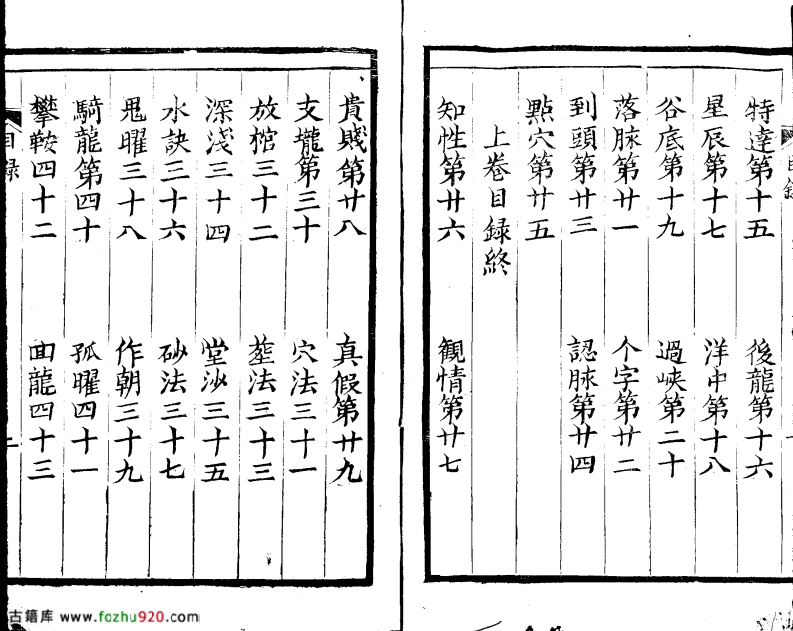 特達第十五　後龍第十六
星辰第十七　洋中第十八
谷底第十九　過峽第二十
落脉第廿一　个字第廿二
到頭第廿三　認脉第廿四
點穴第廿五
上卷目録終
知性第廿六　観情第廿七
貴賤第廿八　真假第廿九
支壠第三十　穴法三十一
放棺三十二　葬法三十三
深淺三十四　堂沙三十五
水訣三十六　砂法三十七
鬼曜三十八　作朝三十九
騎龍第四十　孤曜四十一
攀鞍四十二　回龍四十三
目録
古籍库 www.fozhu920.com